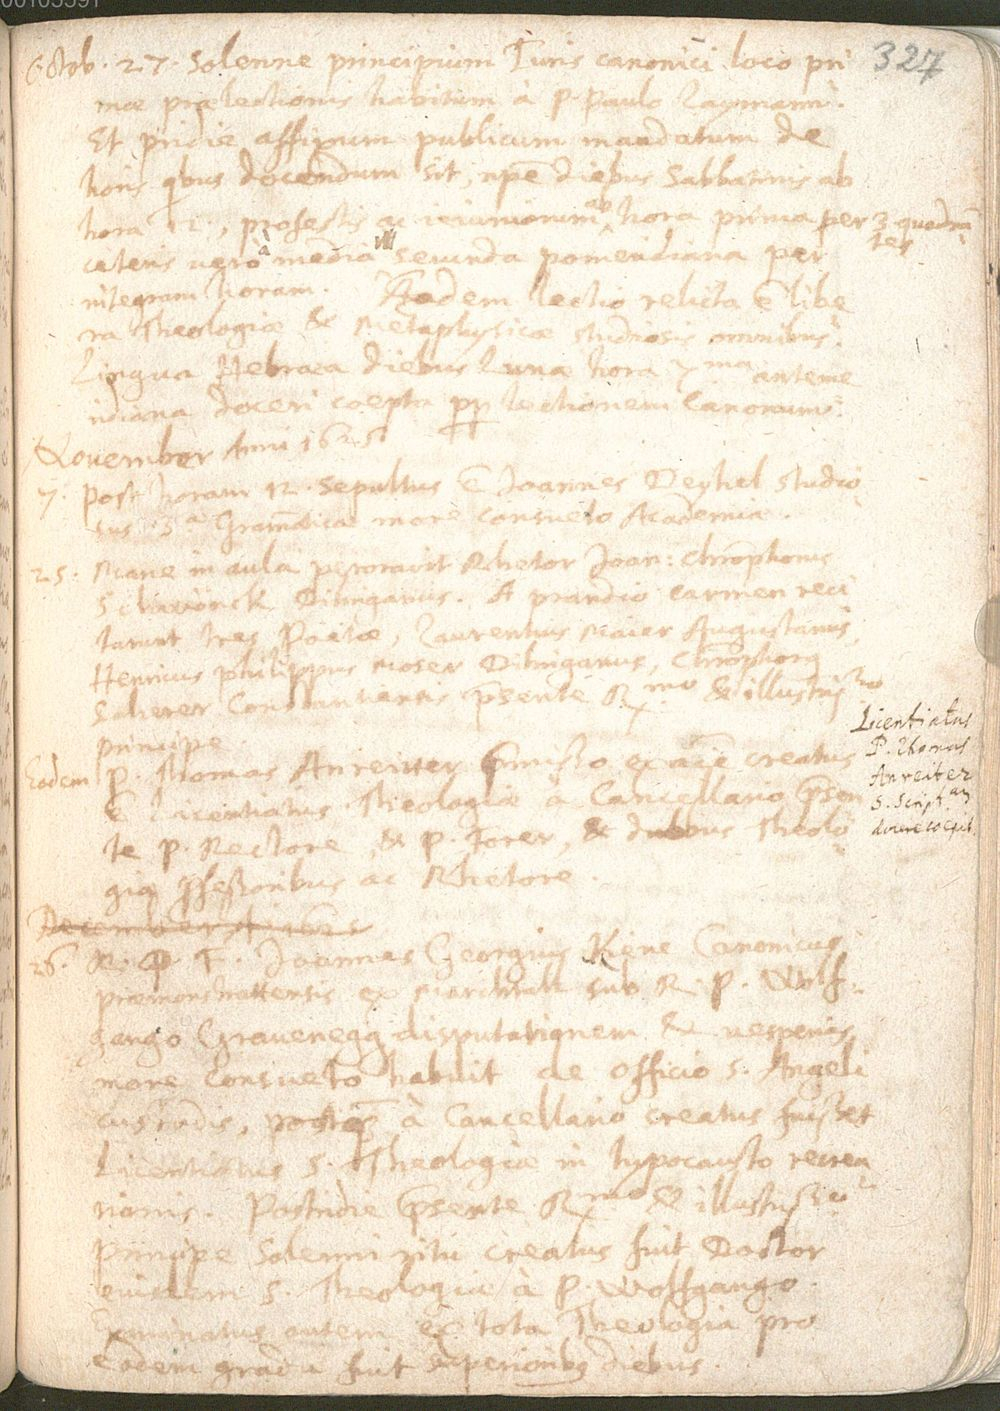 327
Octob. 27. Solenne principium Iuris canonici loco pri
mæ prælectionis habitum à P. Paulo Laymann.
Et pridie affixum publicum mandatum de
horis quibus docendum sit, npe diebus Sabbatinis ab
hora 12, profestis ac ieiuniorum ab hora prima per 3 quadran
tes
cæteris vero à media secunda pomeridiana per
integram horam. Eadem lectio relicta e libe
ra Theologiæ & Metaphysicæ studiosis omnibus.
Lingua Hebræa diebus Lunæ hora 7ma anteme
ridiana doceri cæpta pp lectionem Canonum.
November Anni 1625
7. Post horam 12. Sepultus e Joannes Deyhel studio
sus 3æ Gramaticæ more consueto Academiæ.
25. Mane in aula peroravit Rhetor Joan: Christophorus
Dilinganus. A prandio carmen reci
tarunt tres Poëtæ, Laurentius Maier Augustanus,
Henricus Philippus Moser Dilinganus, Christophorus
Scherer Constantiensis psente Rmo & illustrissimo
principe.
Eadem P. Thomas Anreitter creatus
e Licentiatus Theologiæ à Cancellario psen
te P. Rectore, & P. Forer, & duobus Theolo
giæ pfessoribus ac Rhetore.
Licentiatus
P. Thomas
Anreiter
S. Script.am
docere cæpit.
December A. 1625
26. R. P. F. Joannes Georgius Kiene Canonicus
præmonstratensis ex Marchtall sub R. P. Wolf
gango Gravenegg disputationem & vesperis
more consueto habuit de officio S. Angeli
custodis, postq à Cancellario creatus fuisset
Licentiatus S. Theologiæ in hypocausto recrea
tionis. Postridie psente Rmo & illustrissimo
Principe solenni ritu creatus fuit Doctor
eiusdem S. Theologiæ à P. Wolfgango.
Examinatus autem ex tota Theologia pro
eodem gradu fuit superioribus diebus.